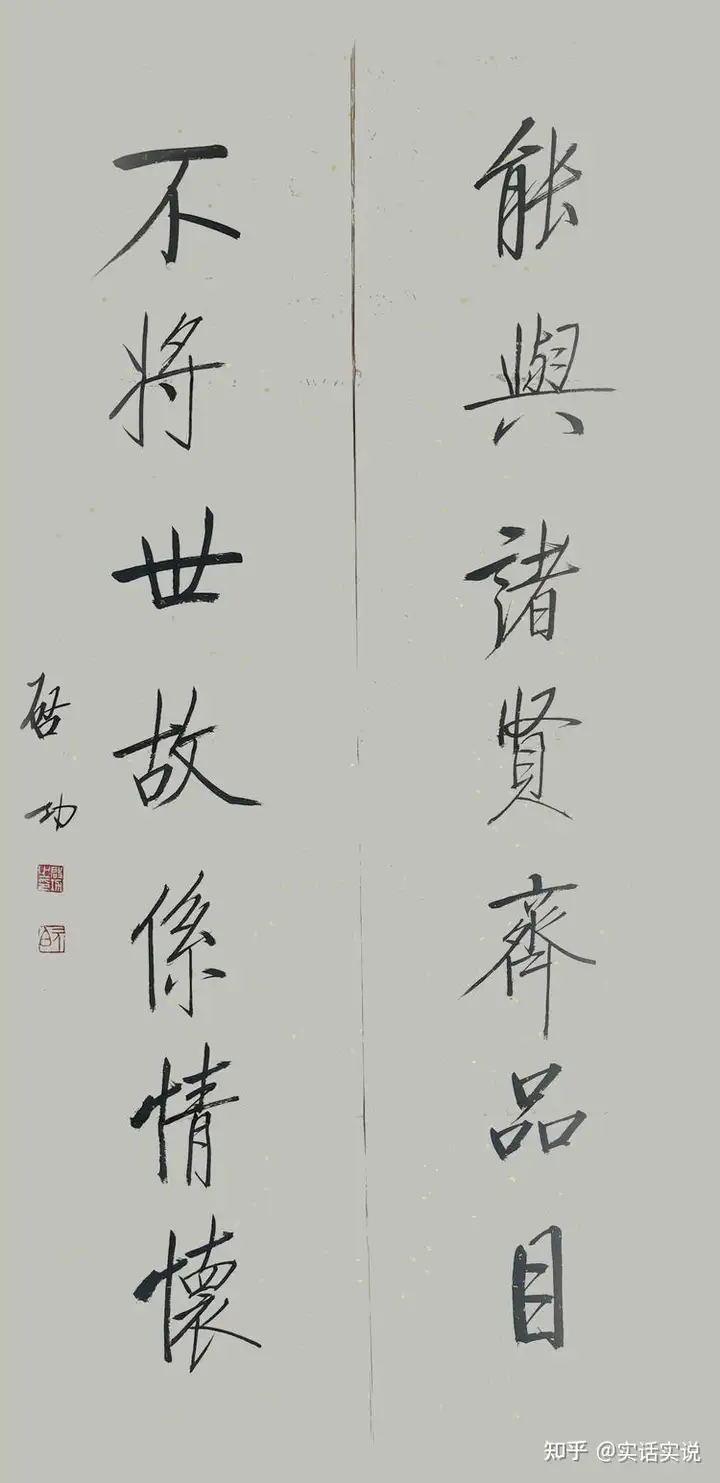 能與諸賢齊品目
不將世故係情懷
启功
知乎 @实话实说